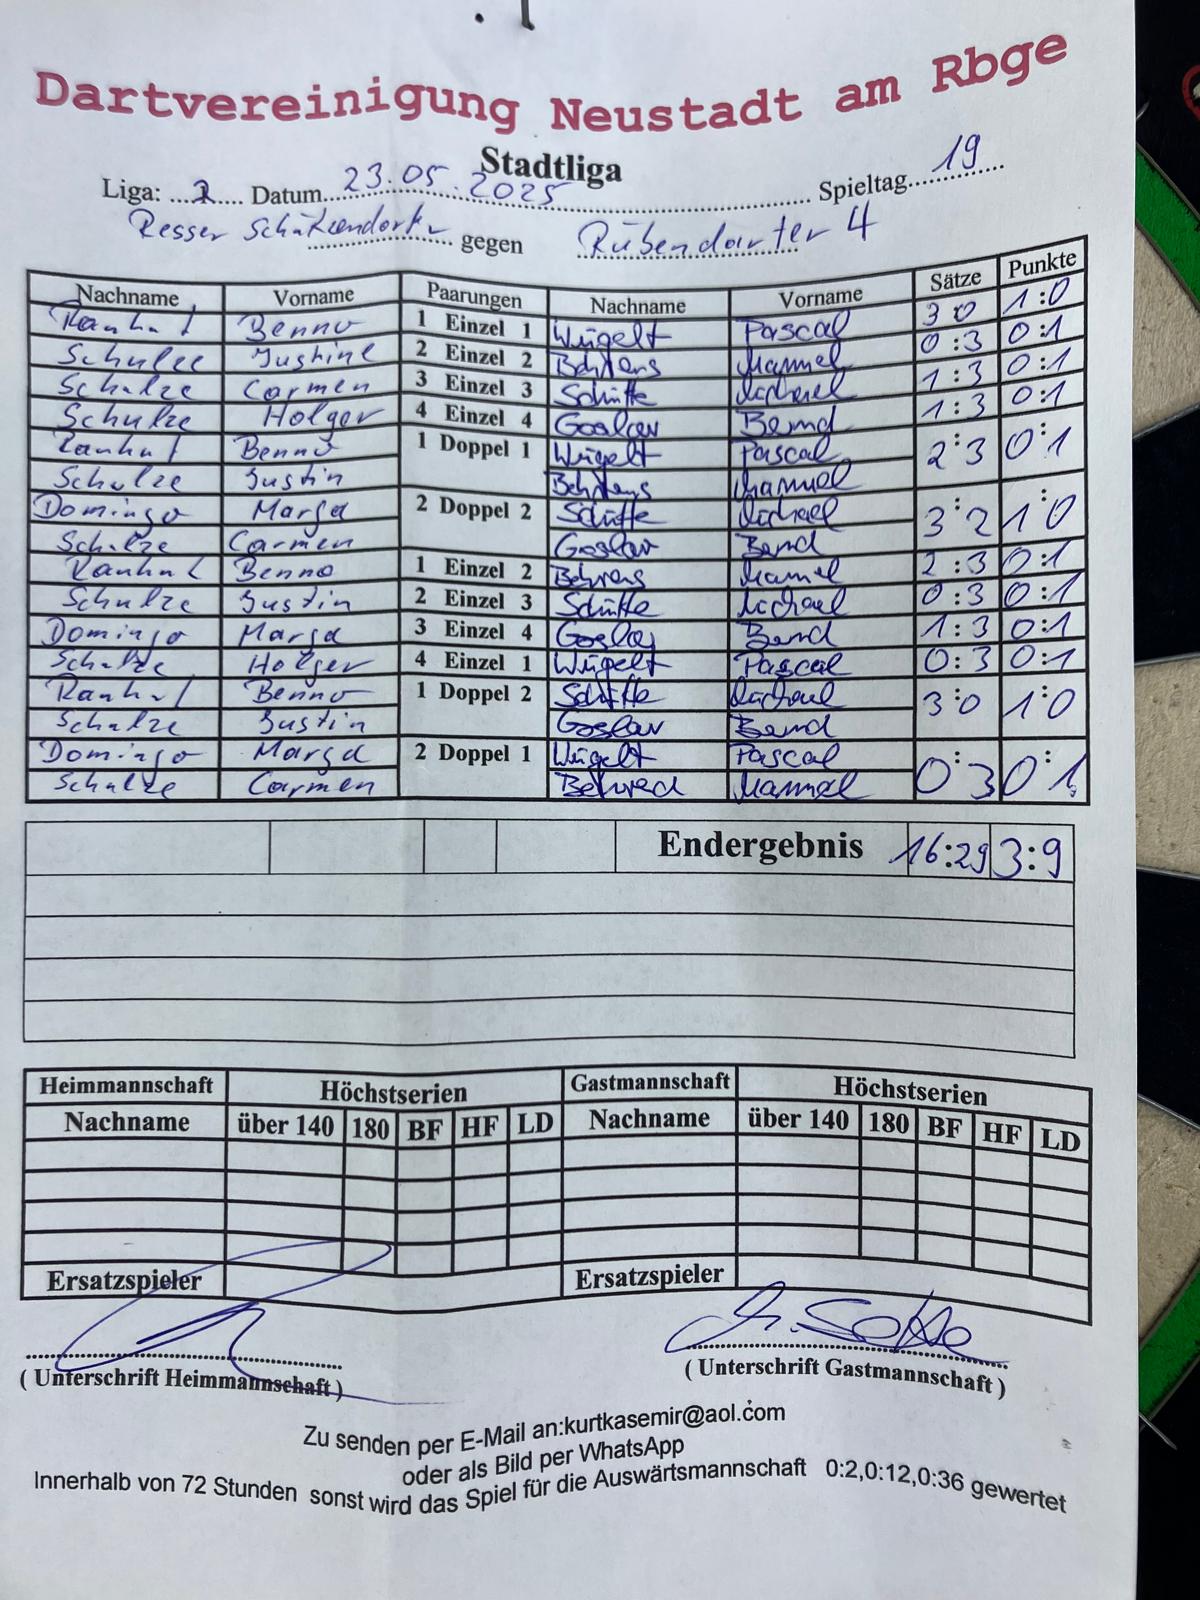 Dartvereinigung Neustadt am Rbge
Stadtliga
Liga: 2 Datum 23.05.2025 Spieltag 19
Resser gegen Rübendarter 4
Nachname Vorname Paarungen Nachname Vorname Sätze Punkte
Benno 1 Einzel 1 Weigelt Pascal 3 0 1:0
Schulze Justin 2 Einzel 2 Behrens Manuel 0:3 0:1
Schulze Carmen 3 Einzel 3 Schütte Michael 1:3 0:1
Schulze Holger 4 Einzel 4 Goslar Bernd 1:3 0:1
Benno 1 Doppel 1 Weigelt Pascal 2:3 0:1
Schulze Justin Behrens Manuel
Domingo Marga 2 Doppel 2 Schütte Michael 3:2 1:0
Schulze Carmen Goslar Bernd
Benno 1 Einzel 2 Behrens Manuel 2:3 0:1
Schulze Justin 2 Einzel 3 Schütte Michael 0:3 0:1
Domingo Marga 3 Einzel 4 Goslar Bernd 1:3 0:1
Schulze Holger 4 Einzel 1 Weigelt Pascal 0:3 0:1
Benno 1 Doppel 2 Schütte Michael 3:0 1:0
Schulze Justin Goslar Bernd
Domingo Marga 2 Doppel 1 Weigelt Pascal 0:3 0:1
Schulze Carmen Manuel
Endergebnis 16:29 3:9
Heimmannschaft Höchstserien Gastmannschaft Höchstserien
Nachname über 140 180 BF HF LD Nachname über 140 180 BF HF LD
Ersatzspieler Ersatzspieler
( Unterschrift Heimmannschaft ) ( Unterschrift Gastmannschaft )
Zu senden per E-Mail an:kurtkasemir@aol.com
oder als Bild per WhatsApp
Innerhalb von 72 Stunden sonst wird das Spiel für die Auswärtsmannschaft 0:2,0:12,0:36 gewertet